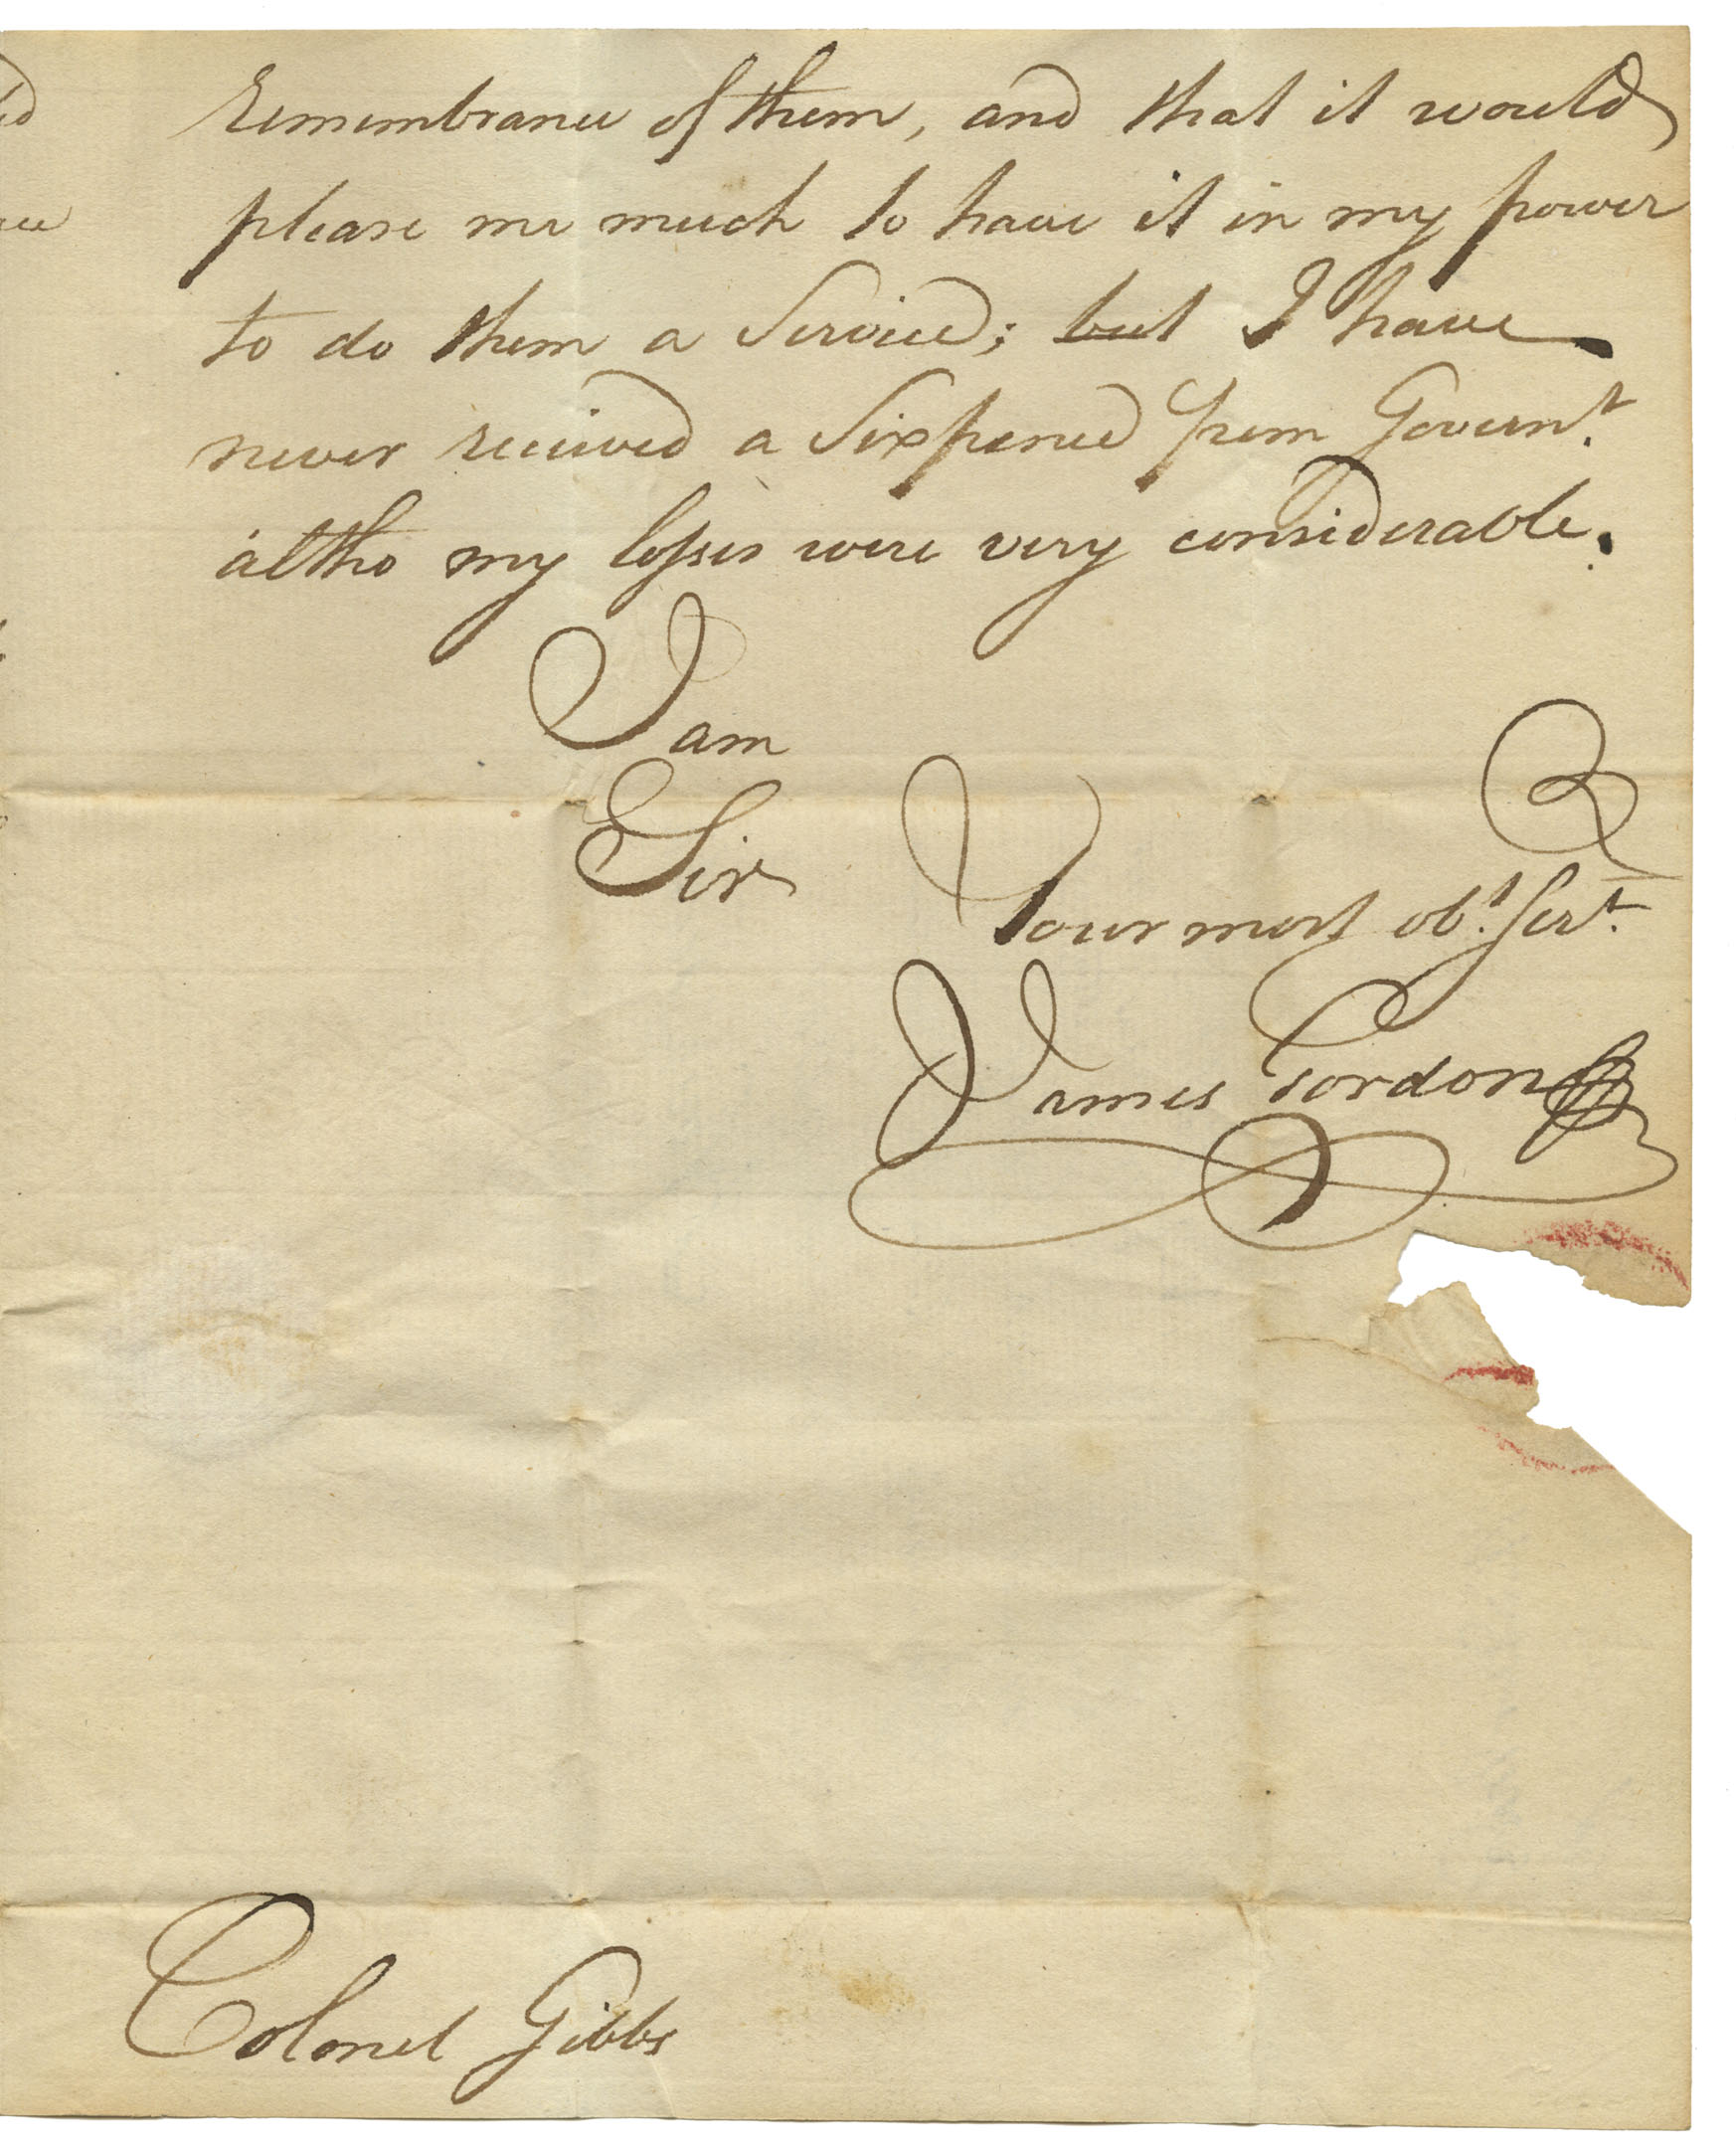 Remembrance of them, and that it would
please me much to have it in my power
to do them a Service; but I have
never received a Sixpence from Governt.
altho my losses were very considerable.
I am
Sir
Your most obt. Servt.
James Gordon
Colonel Gibbs